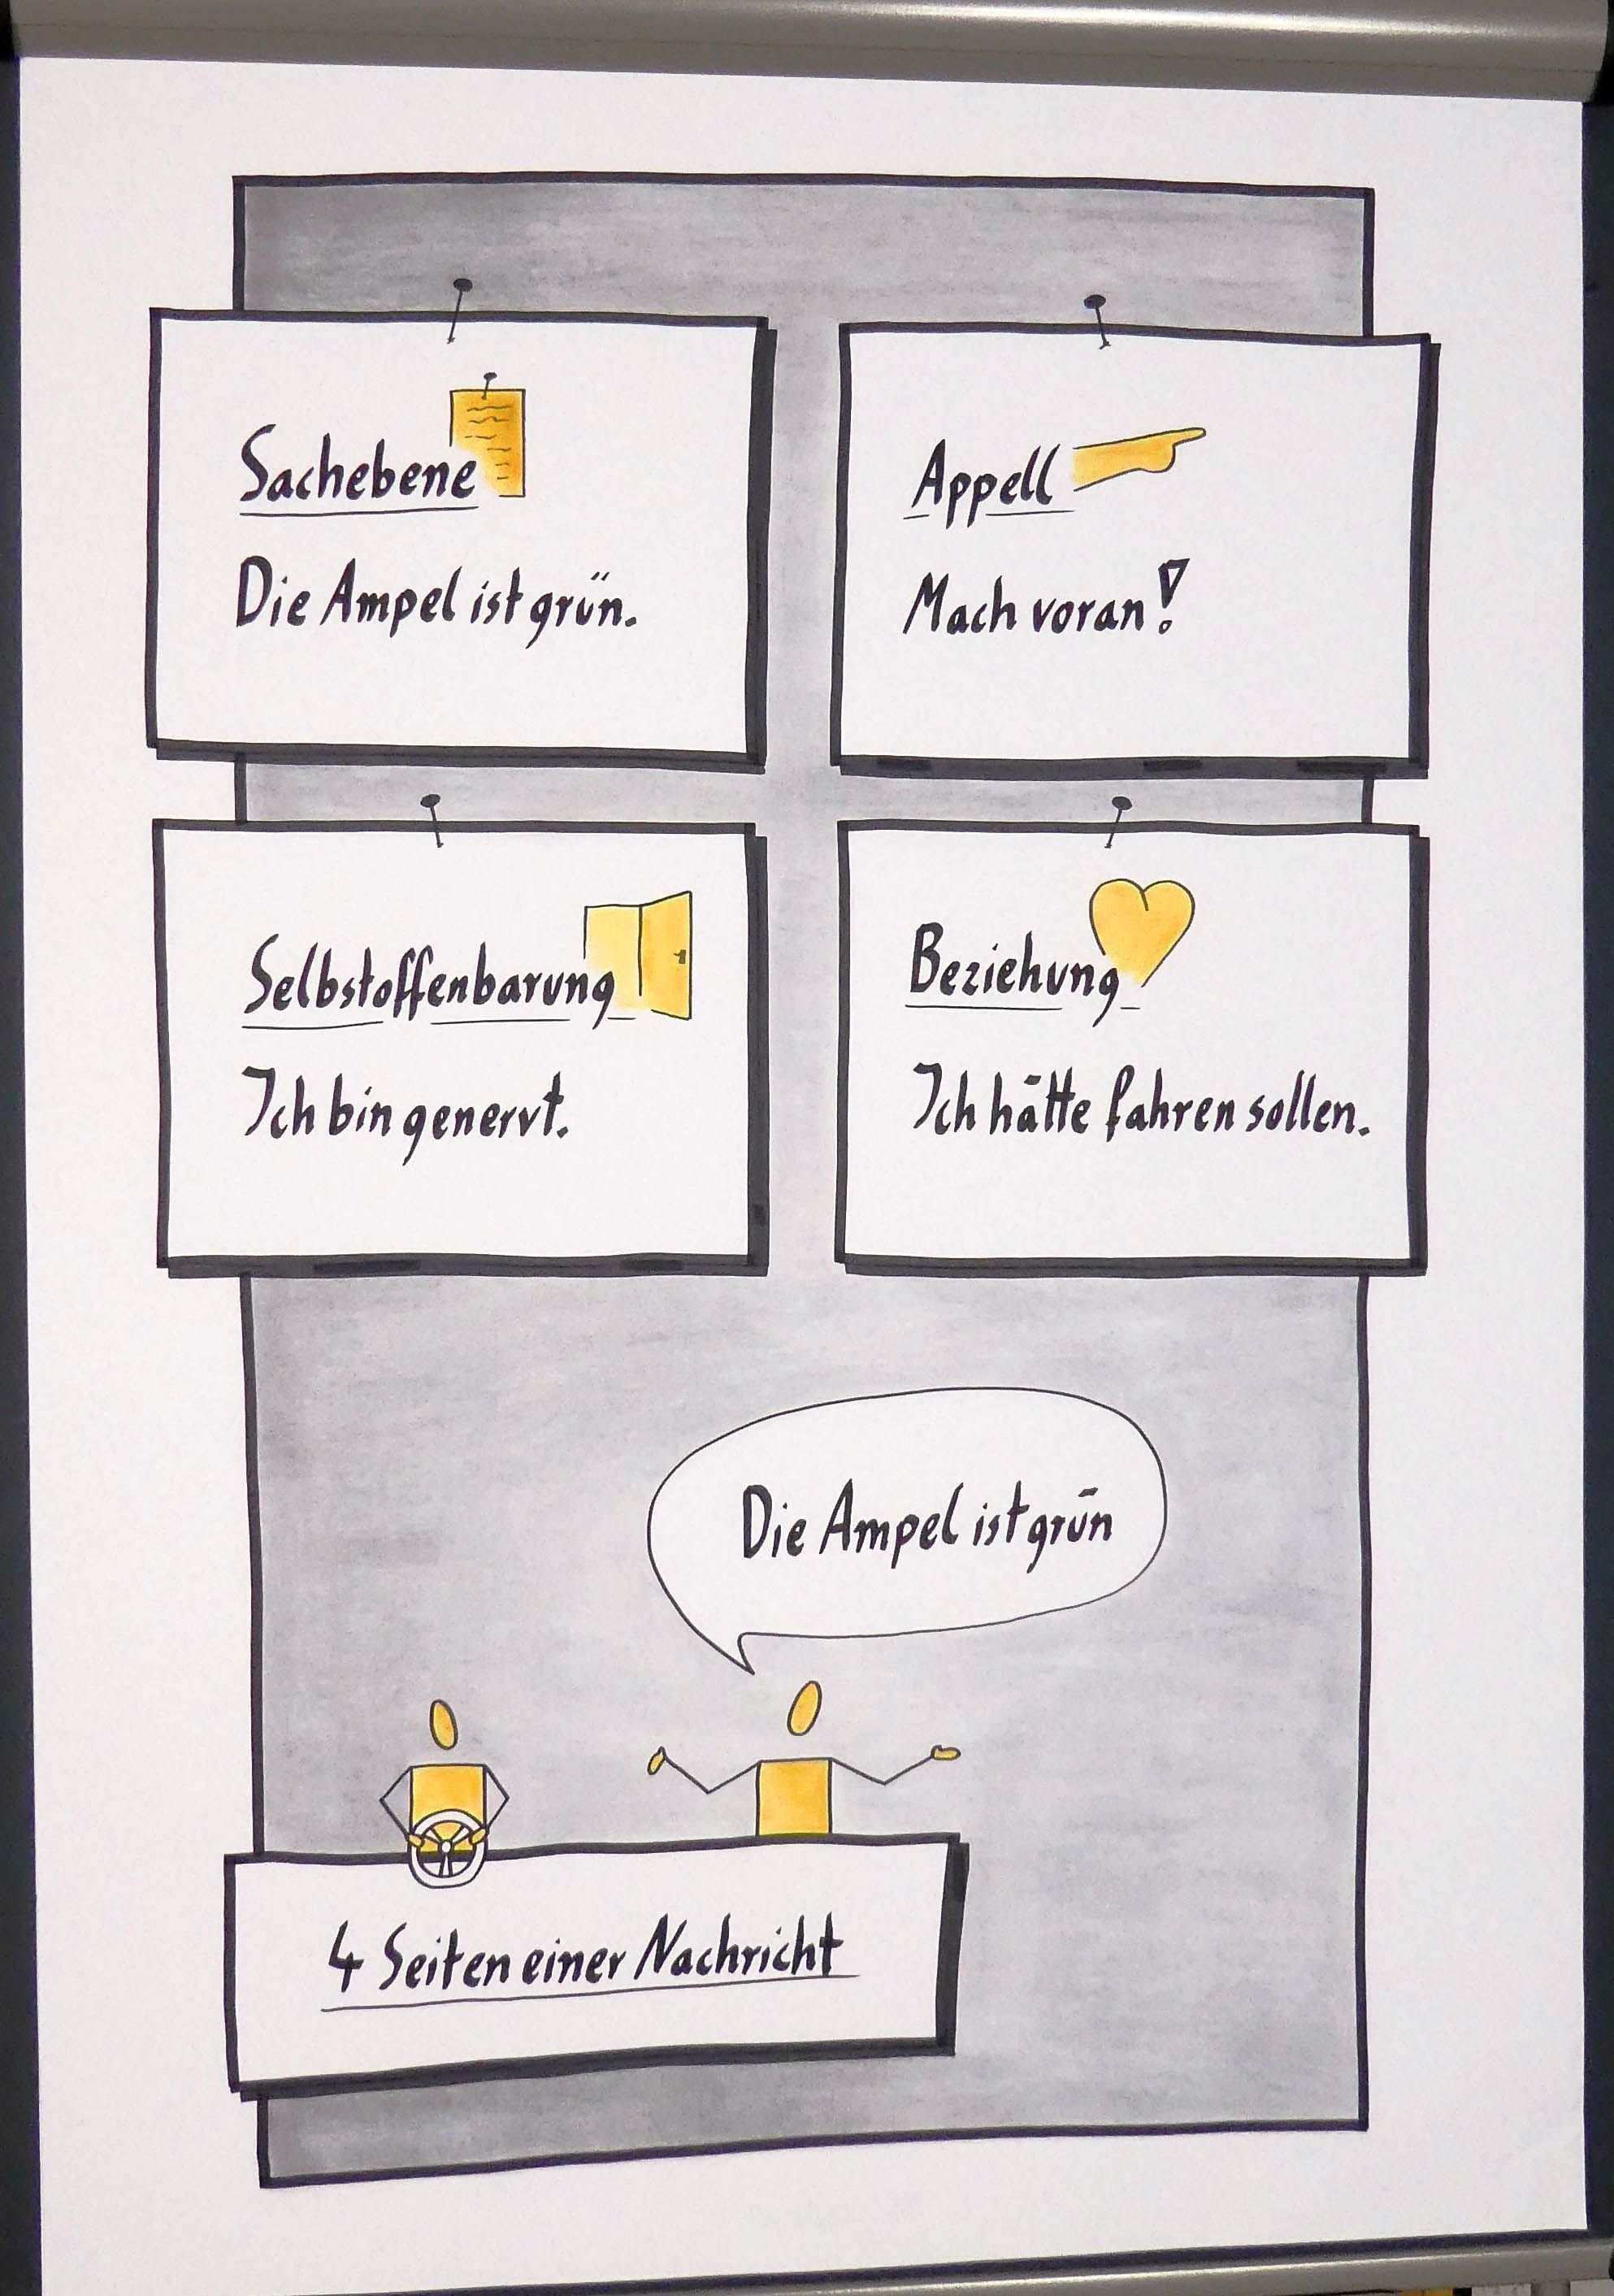 Sachebene
Die Ampel ist grün.
Appell
Mach voran!
Selbstoffenbarung
Ich bin genervt.
Beziehung
Ich hätte fahren sollen.
Die Ampel ist grün
4 Seiten einer Nachricht